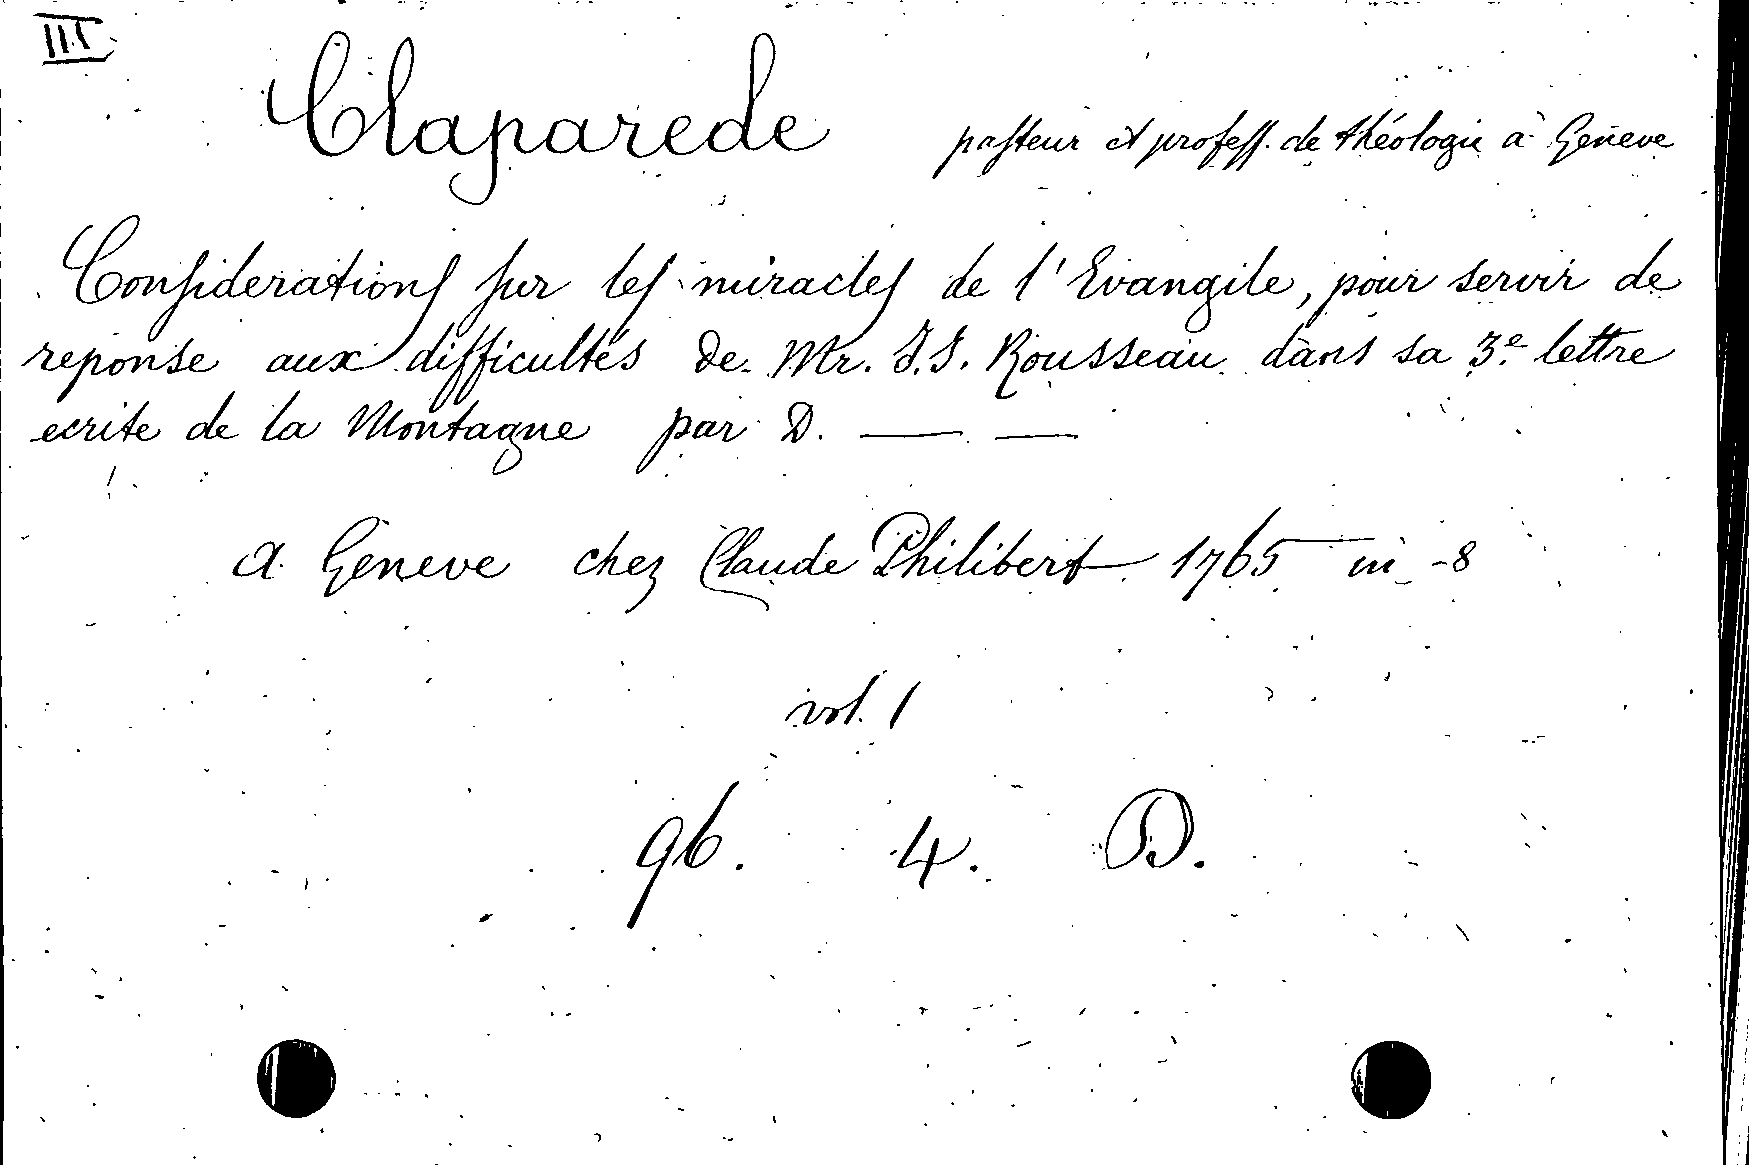 III
Claparede pasteur et profess. de théologie à Geneve
Considerations sur les miracles de l'Evangile, pour servir de
reponse aux difficultés de Mr. J.J. Rousseau dans sa 3e lettre
ecrite de la Montagne par D. — —
a Geneve chez Claude Philibert 1765 in-8
vol. 1
96. 4. D.